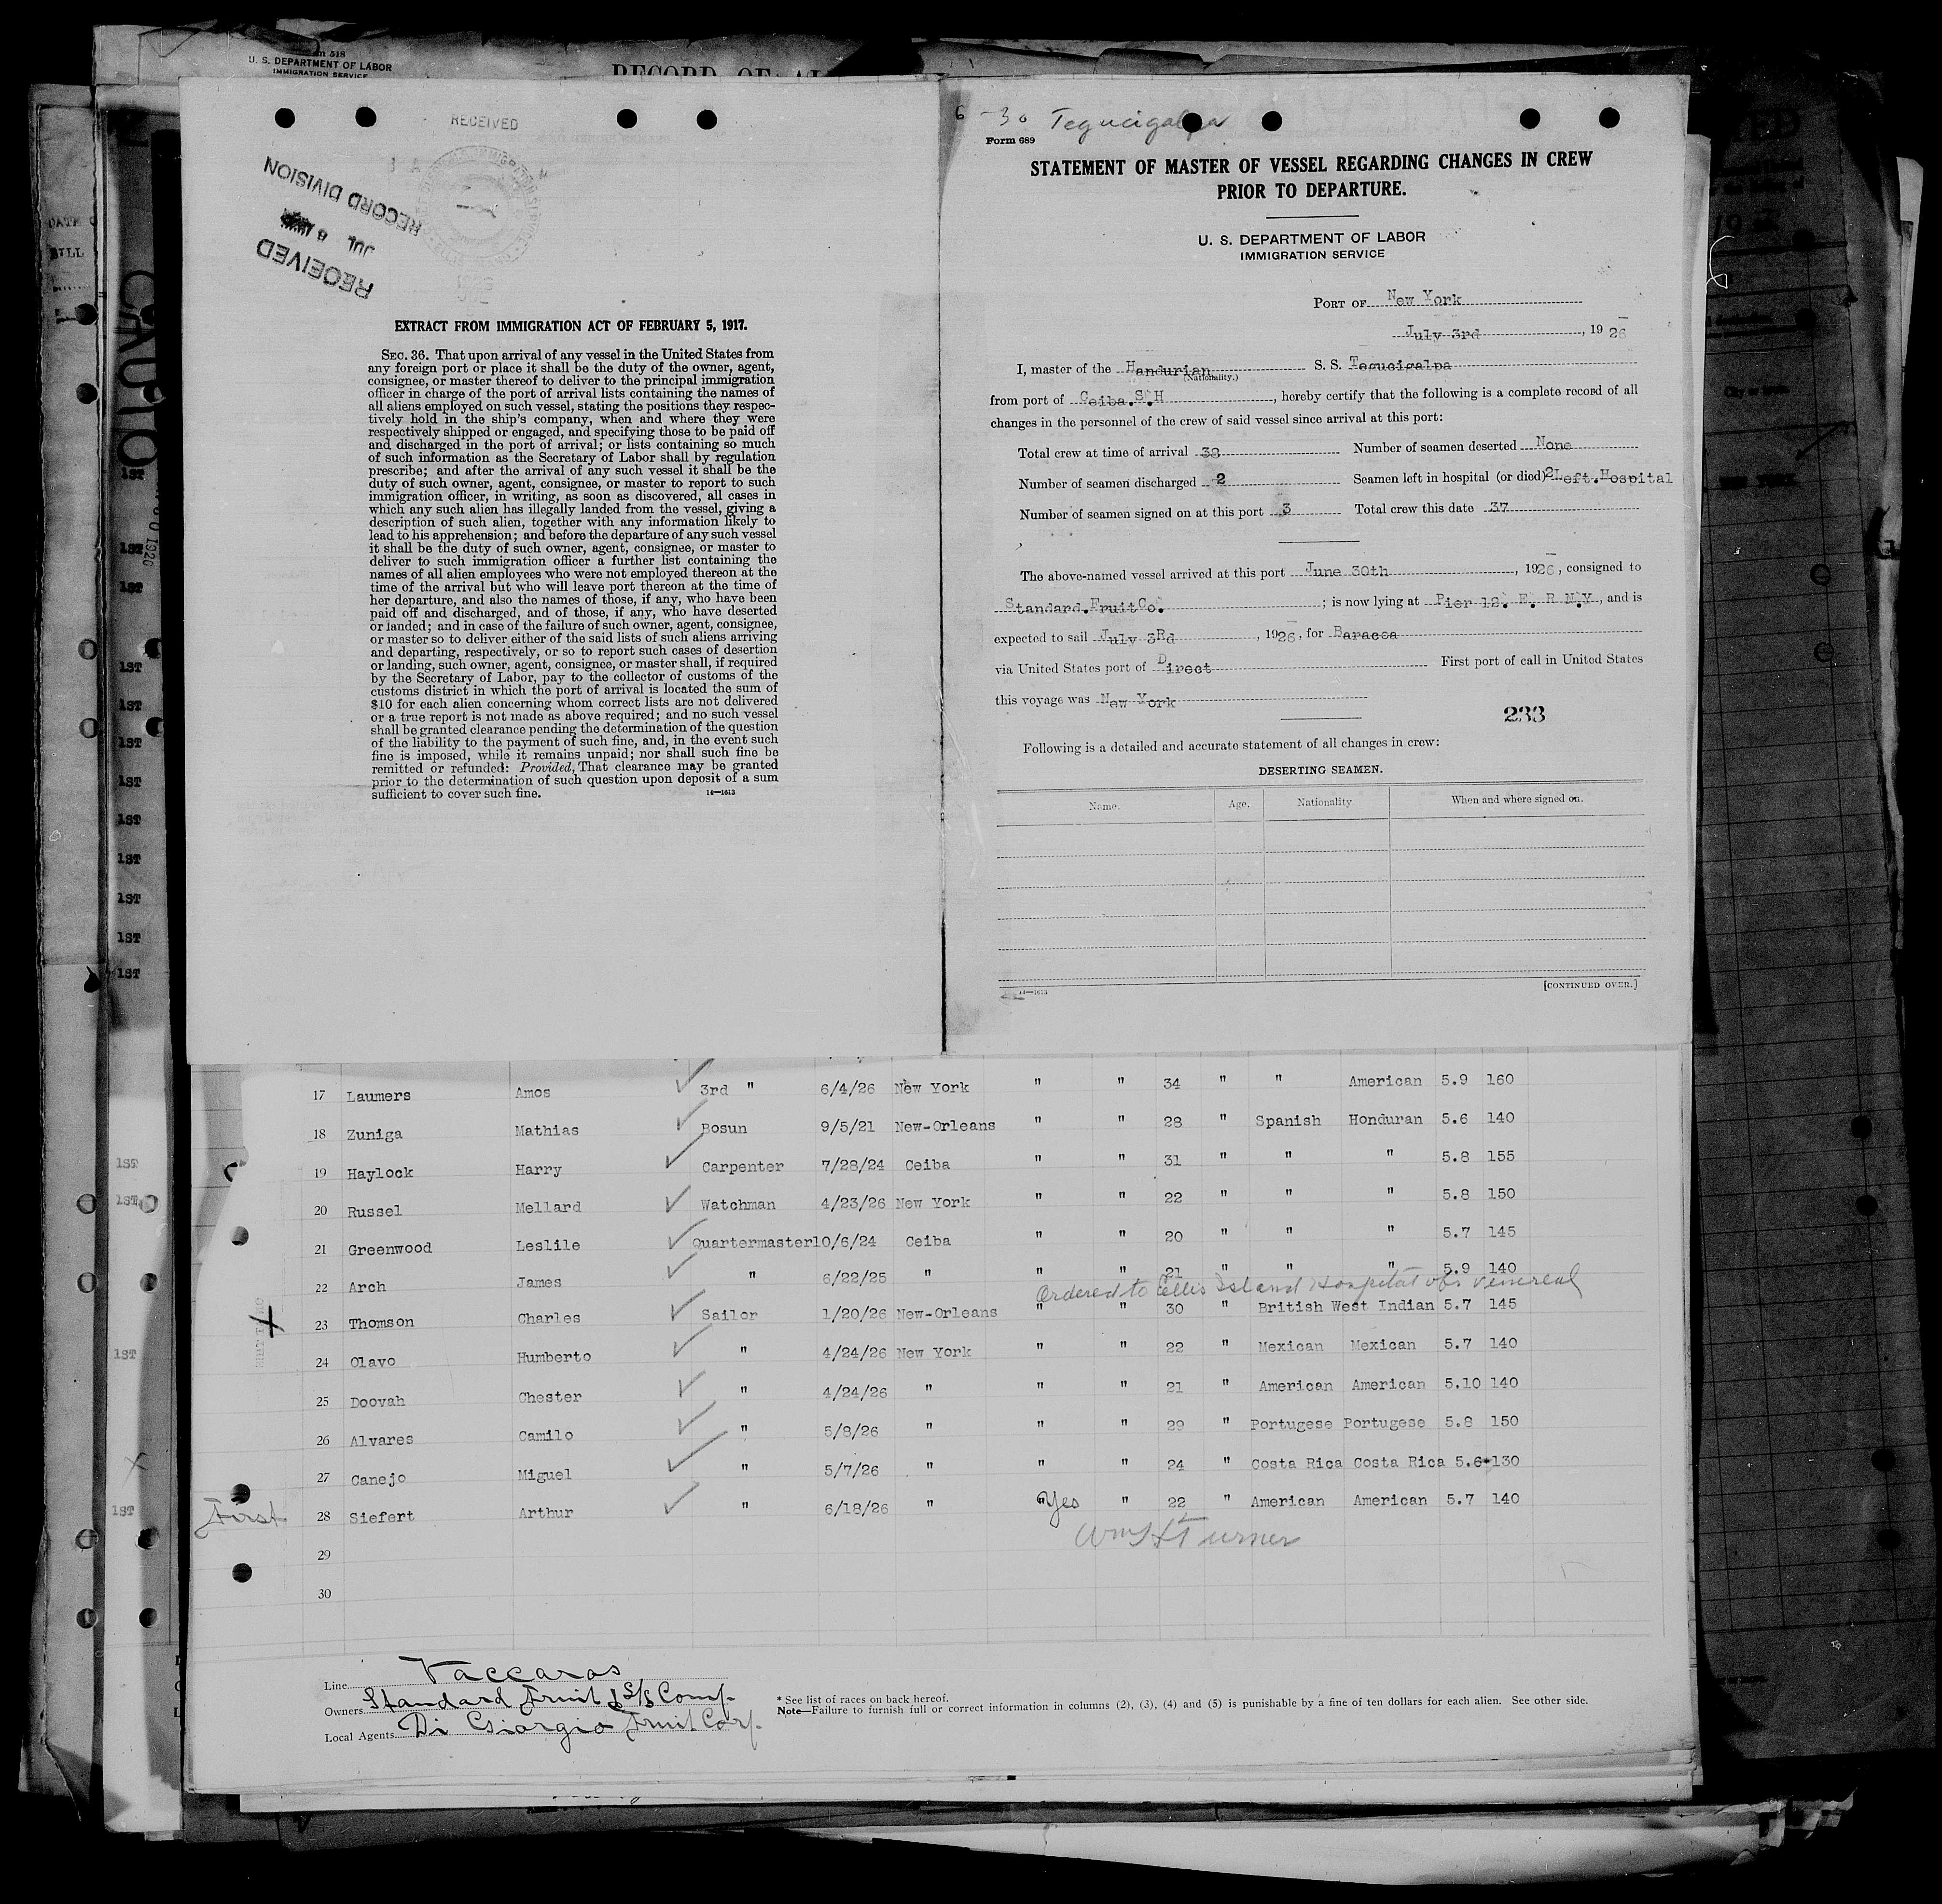 U. S. DEPARTMENT OF LABOR
IMMIGRATION SERVICE
RECEIVED
RECORD DIVISION
JUL 6
RECEIVED
EXTRACT FROM IMMIGRATION ACT OF FEBRUARY 5, 1917.
SEC. 36. That upon arrival of any vessel in the United States from
any foreign port or place it shall be the duty of the owner, agent,
consignee, or master thereof to deliver to the principal immigration
officer in charge of the port of arrival lists containing the names of
all aliens employed on such vessel, stating the positions they respec-
tively hold in the ship's company, when and where they were
respectively shipped or engaged, and specifying those to be paid off
and discharged in the port of arrival; or lists containing so much
of such information as the Secretary of Labor shall by regulation
prescribe; and after the arrival of any such vessel it shall be the
duty of such owner, agent, consignee, or master to report to such
immigration officer, in writing, as soon as discovered, all cases in
which any such alien has illegally landed from the vessel, giving a
description of such alien, together with any information likely to
lead to his apprehension; and before the departure of any such vessel
it shall be the duty of such owner, agent, consignee, or master to
deliver to such immigration officer a further list containing the
names of all alien employees who were not employed thereon at the
time of the arrival but who will leave port thereon at the time of
her departure, and also the names of those, if any, who have been
paid off and discharged, and of those, if any, who have deserted
or landed; and in case of the failure of such owner, agent, consignee,
or master so to deliver either of the said lists of such aliens arriving
and departing, respectively, or so to report such cases of desertion
or landing, such owner, agent, consignee, or master shall, if required
by the Secretary of Labor, pay to the collector of customs of the
customs district in which the port of arrival is located the sum of
$10 for each alien concerning whom correct lists are not delivered
or a true report is not made as above required; and no such vessel
shall be granted clearance pending the determination of the question
of the liability to the payment of such fine, and, in the event such
fine is imposed, while it remains unpaid; nor shall such fine be
remitted or refunded: Provided, That clearance may be granted
prior to the determination of such question upon deposit of a sum
sufficient to cover such fine.
14—1613
6-30 Tegucigalpa
Form 689
STATEMENT OF MASTER OF VESSEL REGARDING CHANGES IN CREW
PRIOR TO DEPARTURE.
U. S. DEPARTMENT OF LABOR
IMMIGRATION SERVICE
PORT OF New York
July 3rd, 1926
I, master of the Handurian S. S. Tegucigalpa
(Nationality.)
from port of Ceiba.S.H, hereby certify that the following is a complete record of all
changes in the personnel of the crew of said vessel since arrival at this port:
Total crew at time of arrival 38 Number of seamen deserted None
Number of seamen discharged 2 Seamen left in hospital (or died) 2Left.Hospital
Number of seamen signed on at this port 3 Total crew this date 37
The above-named vessel arrived at this port June 30th, 1926, consigned to
Standard.FruitCo.; is now lying at Pier 12. E. R N.Y, and is
expected to sail July 3Rd, 1926, for Baracoa
via United States port of Direct First port of call in United States
this voyage was New York
233
Following is a detailed and accurate statement of all changes in crew:
DESERTING SEAMEN.
Name. Age. Nationality When and where signed on.
14—1613
[CONTINUED OVER.]
17 Laumers Amos 3rd " 6/4/26 New York " " 34 " " American 5.9 160
18 Zuniga Mathias Bosun 9/5/21 New-Orleans " " 28 " Spanish Honduran 5.6 140
19 Haylock Harry Carpenter 7/28/24 Ceiba " " 31 " " " 5.8 155
20 Russel Mellard Watchman 4/23/26 New York " " 22 " " " 5.8 150
21 Greenwood Leslile Quartermaster10/6/24 Ceiba " " 20 " " " 5.7 145
22 Arch James " 6/22/25 " " " 21 " " " 5.9 140
Ordered to Ellis Island Hospital obs venereal
23 Thomson Charles Sailor 1/20/26 New-Orleans " " 30 " British West Indian 5.7 145
24 Olavo Humberto " 4/24/26 New York " " 22 " Mexican Mexican 5.7 140
25 Doovah Chester " 4/24/26 " " " 21 " American American 5.10 140
26 Alvares Camilo " 5/8/26 " " " 29 " Portugese Portugese 5.8 150
27 Canejo Miguel " 5/7/26 " " " 24 " Costa Rica Costa Rica 5.6 130
First 28 Siefert Arthur " 6/18/26 " Yes " 22 " American American 5.7 140
Wm H Turner
29
30
Line Vaccaros
Owners Standard Fruit & S/S Comp.
Local Agents Di Giorgio Fruit Corp.
* See list of races on back hereof.
Note—Failure to furnish full or correct information in columns (2), (3), (4) and (5) is punishable by a fine of ten dollars for each alien. See other side.